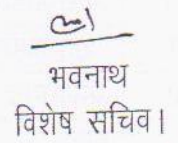 भवनाथ
विशेष सचिव।